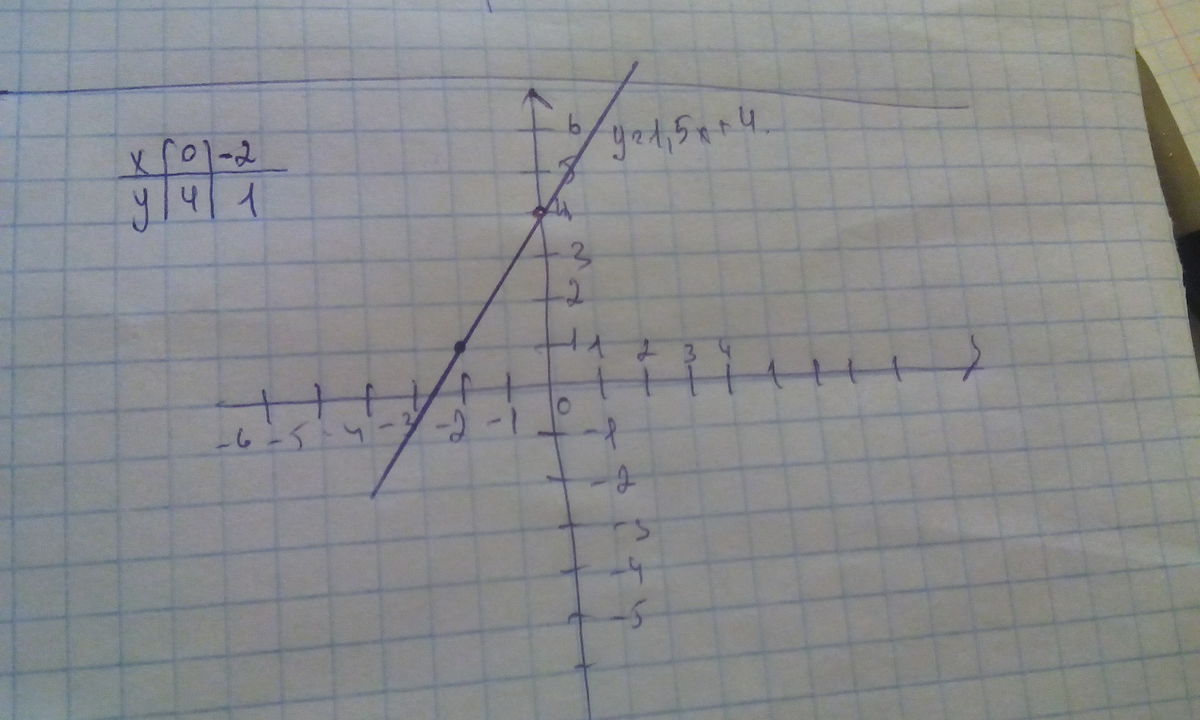 x 0 -2
y 4 1
y=1,5x+4.
6
5
4
3
2
1
1 2 3 4
0
-6 -5 -4 -3 -2 -1
-1
-2
-3
-4
-5